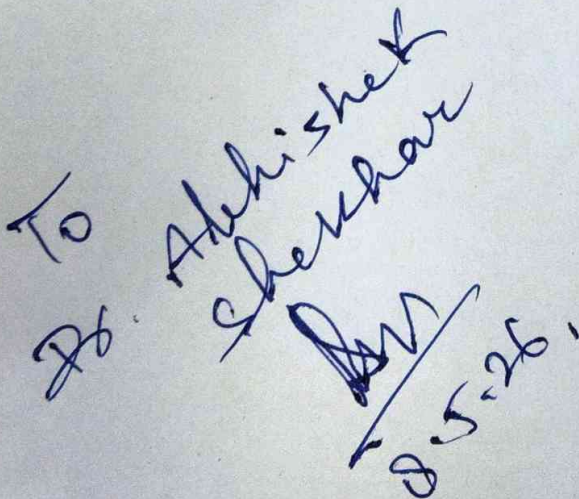 To
Dr. Abhishek
Shekhar
8.5.26,